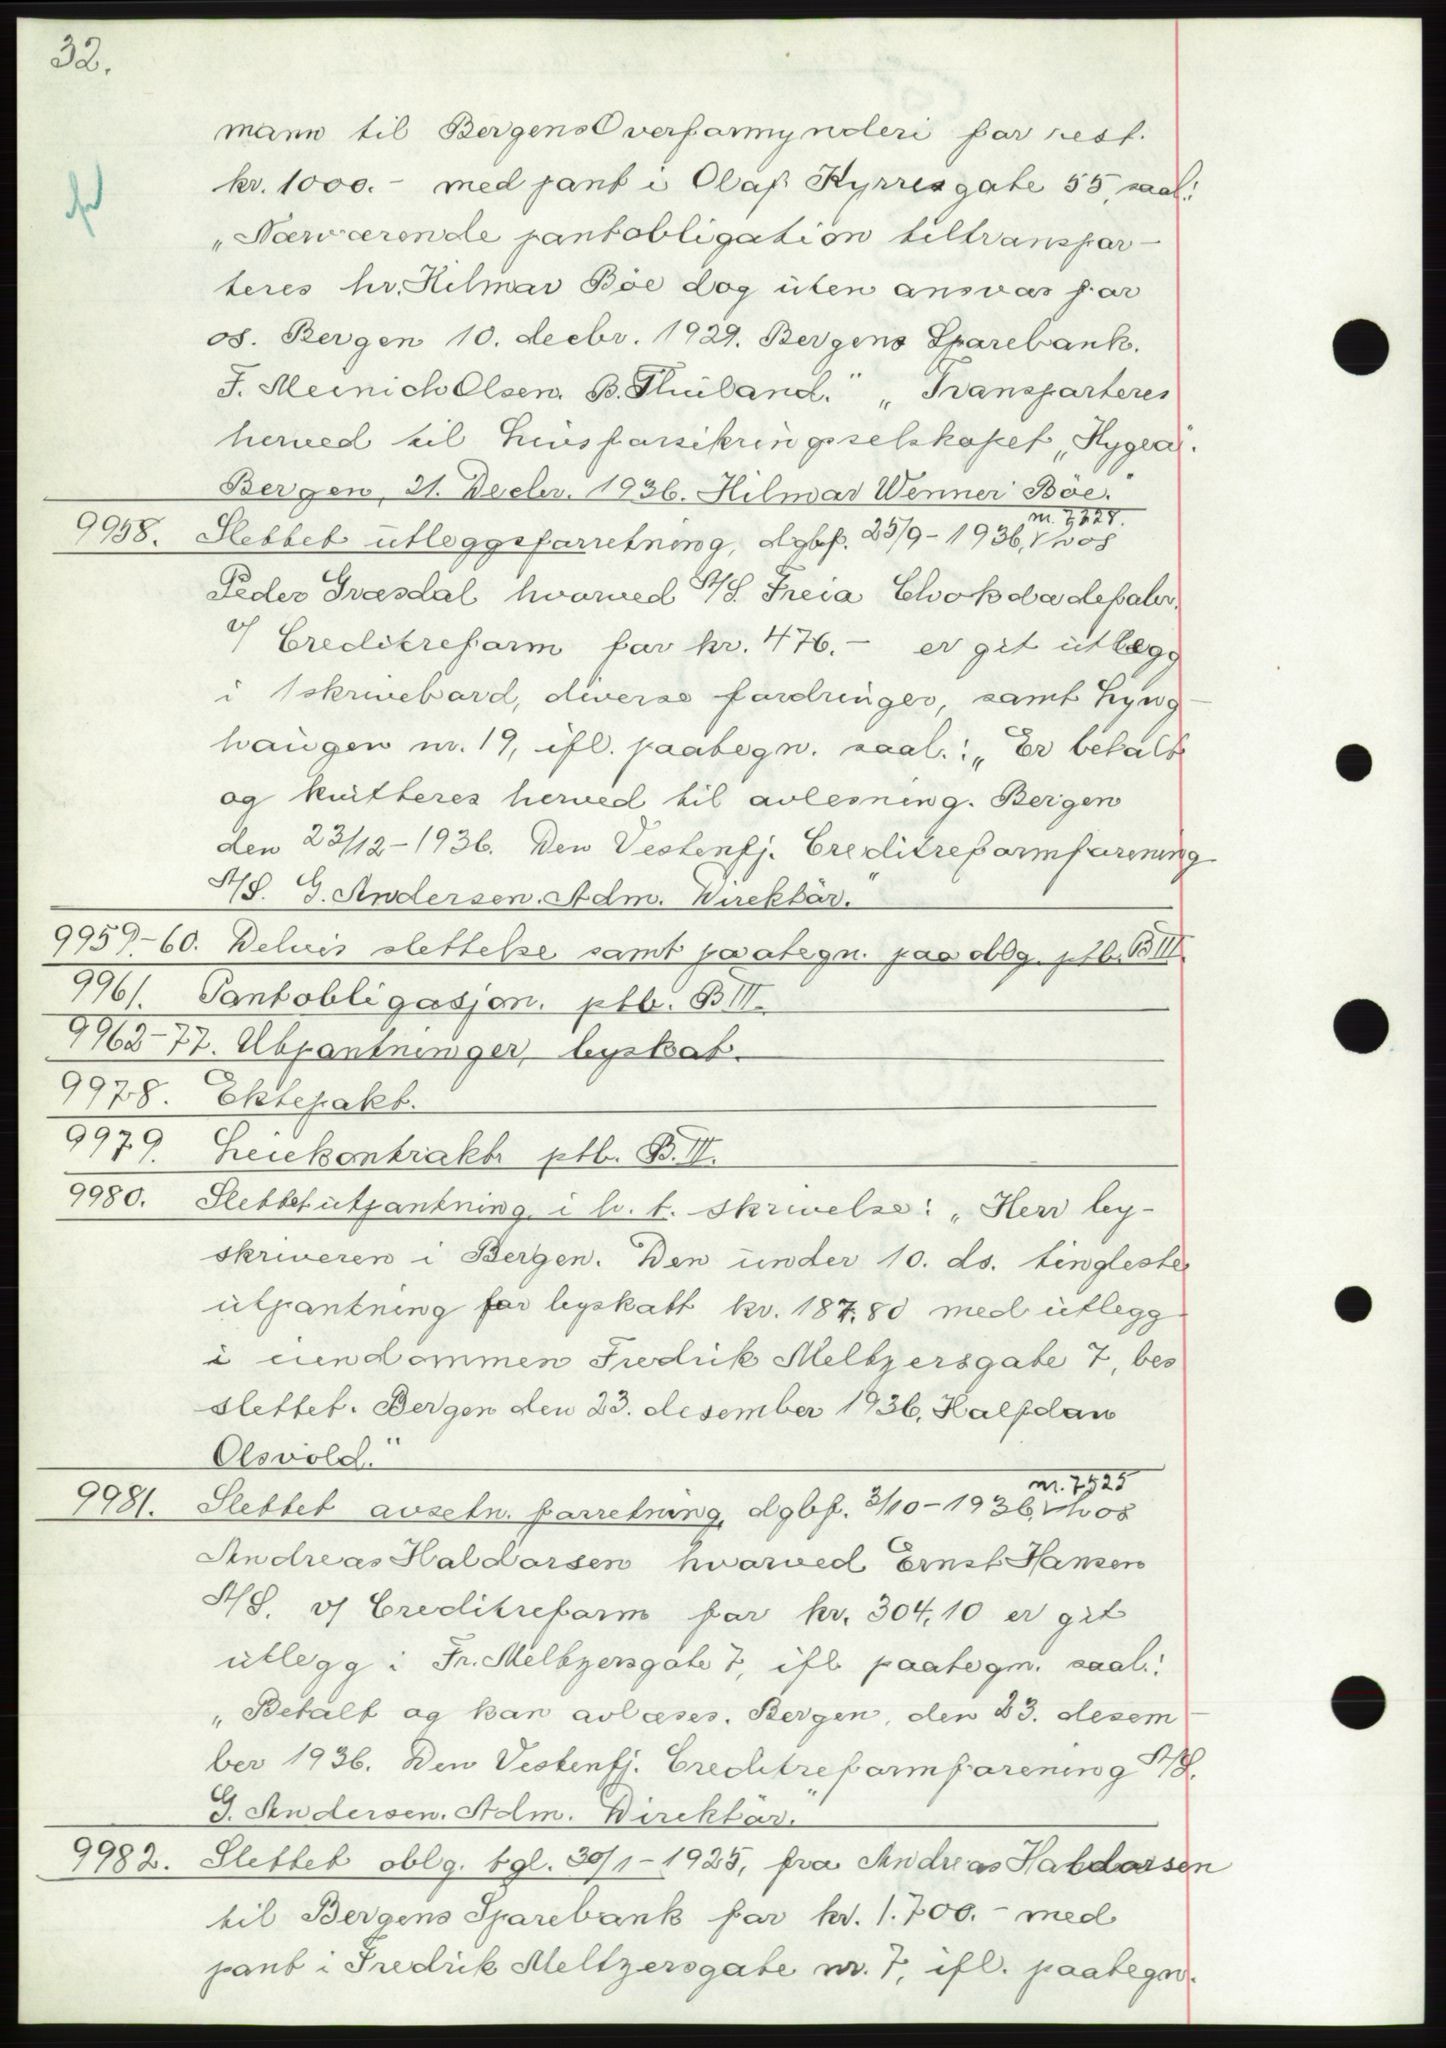 32.
mann til Bergens Overformynderi for rest.
kr. 1000.- med pant i Olaf Kyrresgate 55, saal.:
„Nærværende pantobligation tiltranspor-
teres hr. Hilmar Böe dog uten ansvar for
os. Bergen 10. decbr. 1929. Bergens Sparebank.
F. Meinich Olsen. B. Thuland." „Transporteres
herved til Livsforsikringsselskapet „Hygea".
Bergen, 21. Decbr. 1936. Hilmar Wenner Böe."
9958. Slettet utleggsforretning, dgbf. 25/9-1936, hos
Peder Græsdal hvorved A/S. Freia Chokoladefabr.
v/ Creditreform for kr. 476.- er git utlegg
i 1 skrivebord, diverse fordringer, samt Lyng-
haugen nr. 19, ifl. paategn. saal.: „Er betalt
og kvitteres herved til avlesning. Bergen
den 23/12-1936. Den Vestenfj. Creditreformforening
A/S. G. Andersen. Adm. Direktör."
9959-60. Delvis slettelse samt paategn. paa oblg. ptb. B III.
9961. Pantobligasjon. ptb. B III.
9962-77. Utpantninger, byskat.
9978. Ektepakt.
9979. Leiekontrakt ptb. B. III.
9980. Slettet utpantning i h. t. skrivelse: „Herr by-
skriveren i Bergen. Den under 10. ds. tingleste
utpantning for byskatt kr. 187.80 med utlegg
i eiendommen Fredrik Meltzersgate 7, bes
slettet. Bergen den 23. desember 1936, Halfdan
Olsvold."
nr. 7525
9981. Slettet avsetn. forretning, dgbf. 3/10-1936, hos
Andreas Haldorsen hvorved Ernst Hansen
A/S. v/ Creditreform for kr. 304,10 er git
utlegg i Fr. Meltzersgate 7, ifl. paategn. saal.:
„Betalt og kan avlæses. Bergen, den 23. desem-
ber 1936. Den Vestenfj. Creditreformforening A/S.
G. Andersen. Adm. Direktör."
9982. Slettet oblg. tgl. 30/1-1925, fra Andreas Haldorsen
til Bergens Sparebank for kr. 1.700.- med
pant i Fredrik Meltzersgate nr. 7, ifl. paategn.